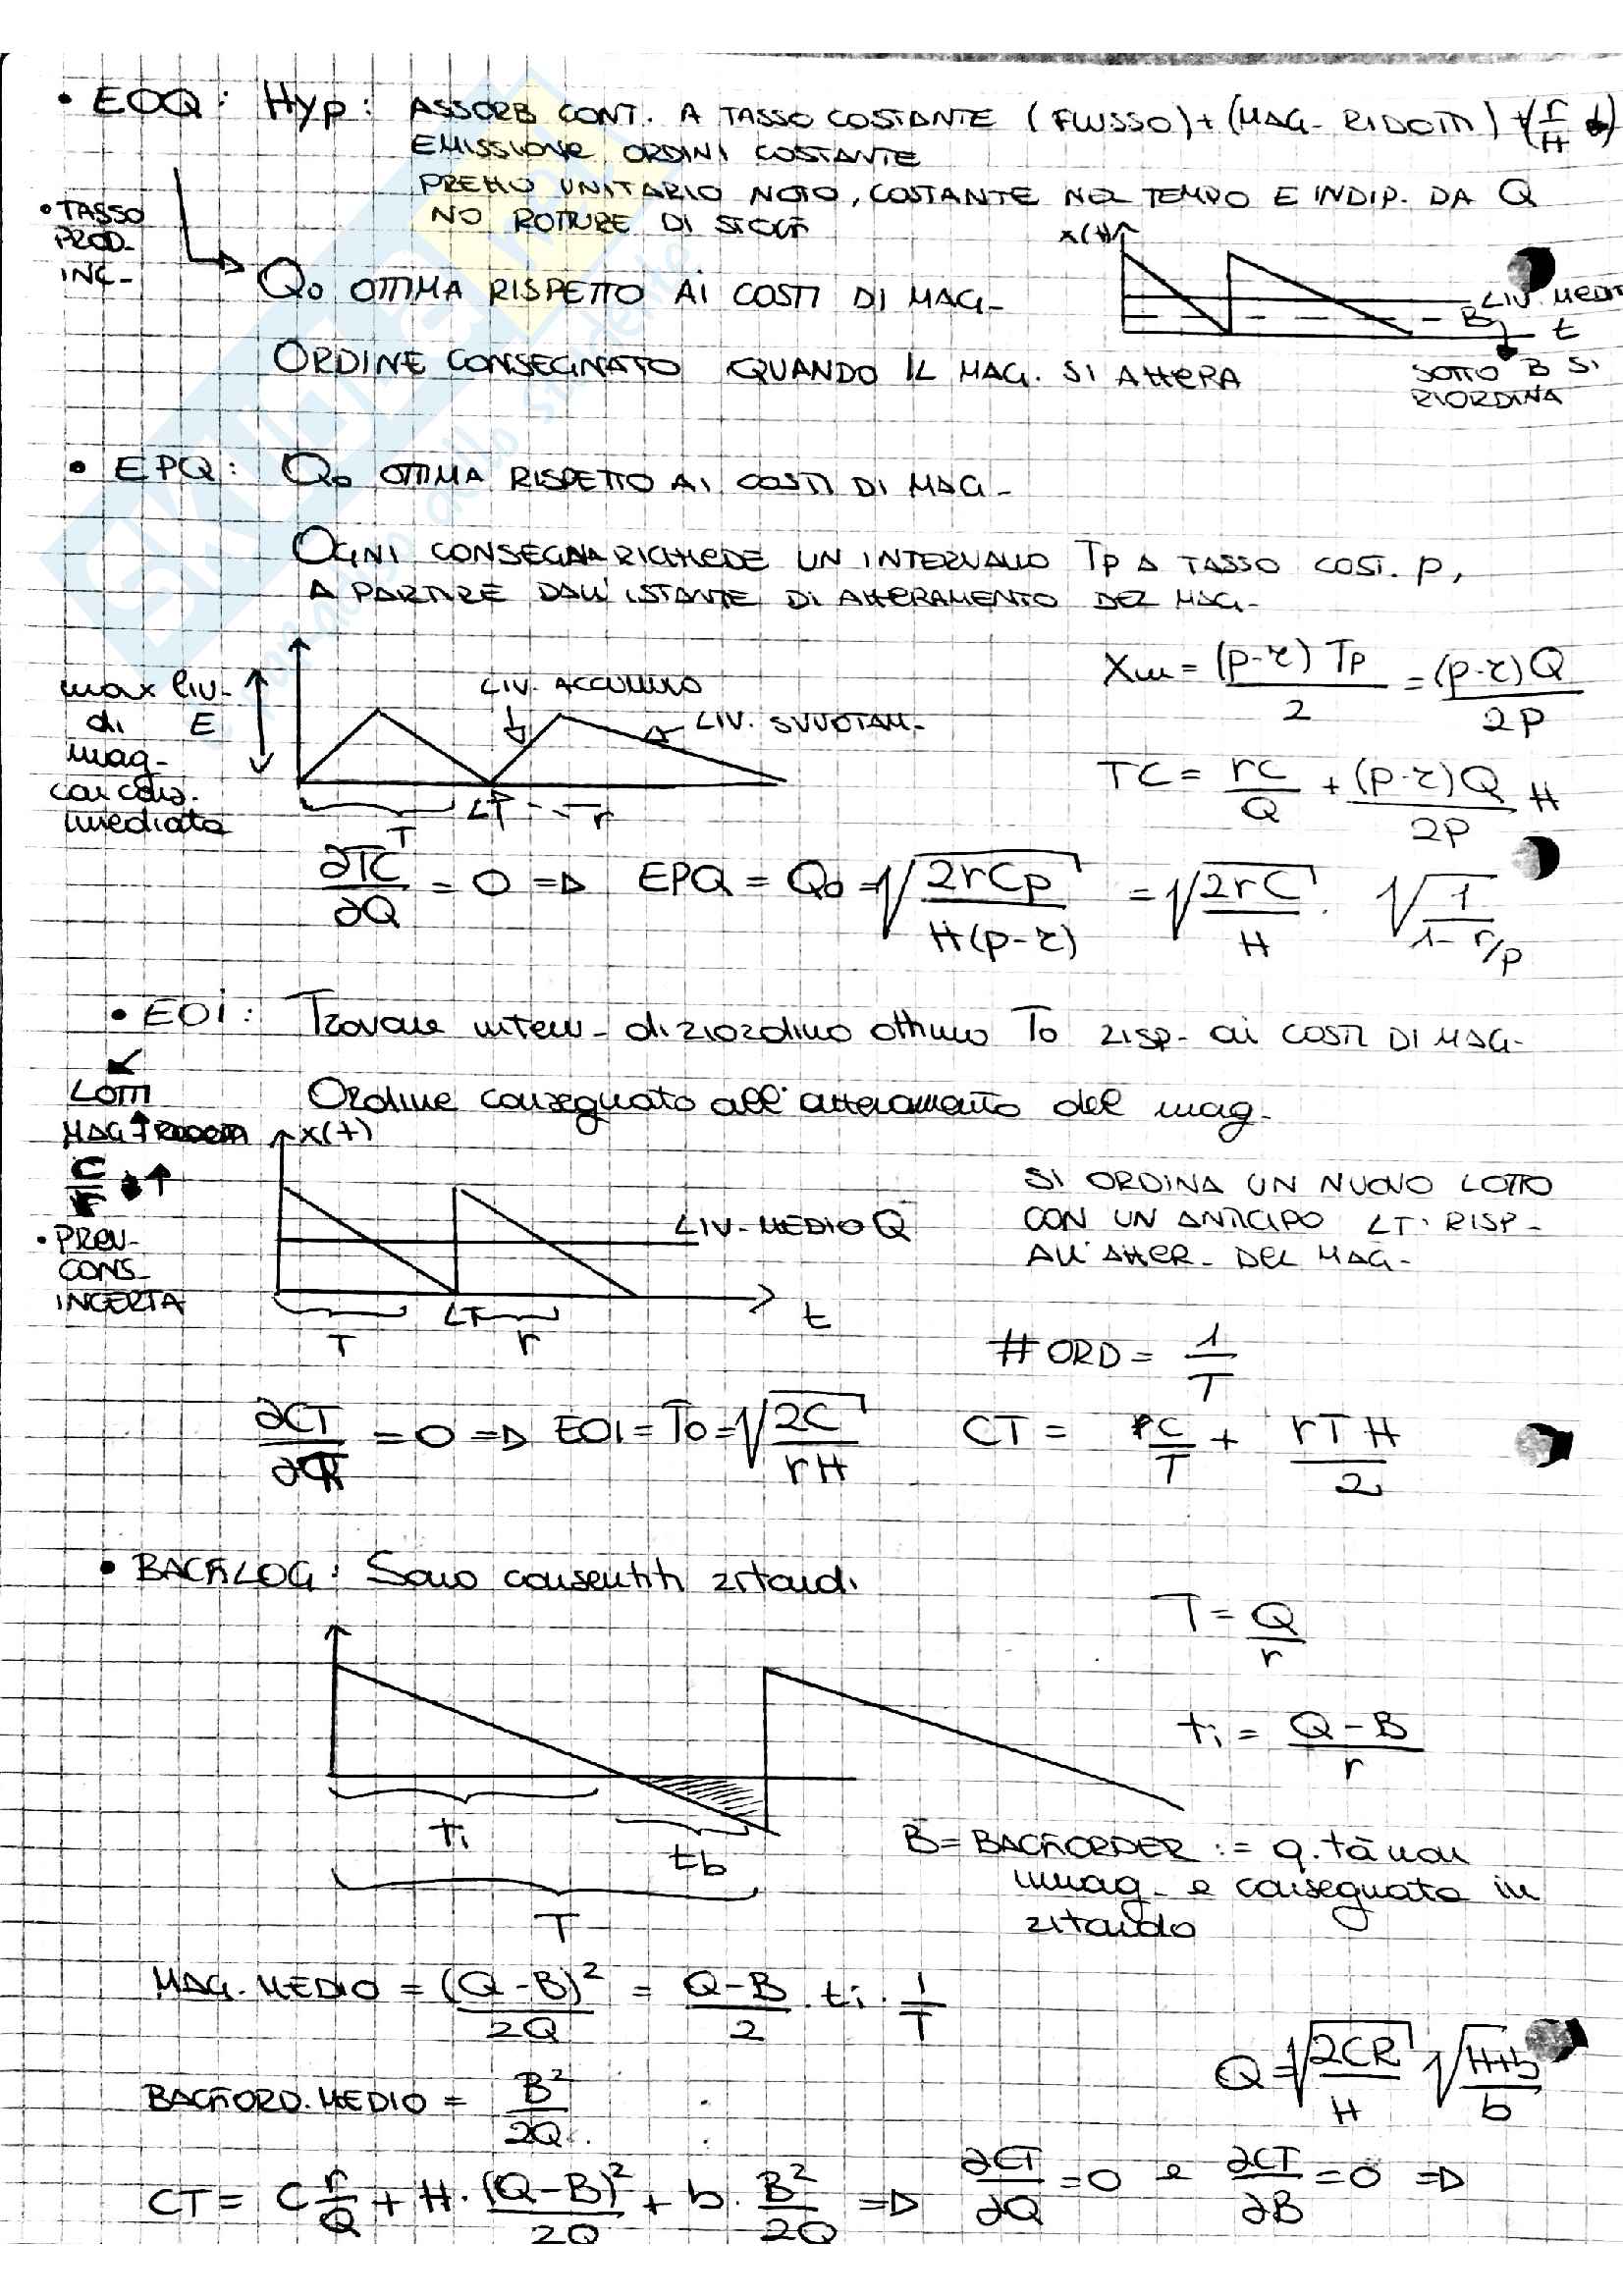 • EOQ: Hyp: ASSORB CONT. A TASSO COSTANTE (FLUSSO)+(MAG- RIDOTTI)+(r/H ↓)
EMISSIONE ORDINI COSTANTE
PREZZO UNITARIO NOTO, COSTANTE NEL TEMPO E INDIP. DA Q
NO ROTTURE DI STOCK
• TASSO
PROD-
INC-
Q0 OTTIMA RISPETTO AI COSTI DI MAG-
x(t)
LIV. MEDIO
B
t
ORDINE CONSEGNATO QUANDO IL MAG. SI AZZERA
SOTTO B SI
RIORDINA
• EPQ: Q0 OTTIMA RISPETTO AI COSTI DI MAG-
OGNI CONSEGNA RICHIEDE UN INTERVALLO Tp A TASSO COST. p,
A PARTIRE DALL'ISTANTE DI AZZERAMENTO DEL MAG-
max liv-
di E
mag-
con cons.
imediata
LIV. ACCUMULO
LIV. SVUOTAM-
T
LT
r
Xm = (p-r) Tp / 2 = (p-r)Q / 2p
TC = rC/Q + (p-r)Q/2p H
∂TC/∂Q = 0 => EPQ = Q0 = √(2rCp / H(p-r)) = √(2rC/H) · √(1 / 1-r/p)
• EOI: Trovare interv- di riordino ottimo T0 risp- ai COSTI DI MAG-
LOTTI
MAG
C/r ↑
Ordine consegnato all'azzeramento del mag-
x(t)
• PREV-
CONS-
INCERTA
LIV-MEDIO Q
T
LT
r
t
SI ORDINA UN NUOVO LOTTO
CON UN ANTICIPO LT RISP-
ALL'AZZER- DEL MAG-
# ORD = 1/T
∂CT/∂T = 0 => EOI = T0 = √(2C/rH)
CT = C/T + rTH/2
• BACKLOG: Sono consentiti ritardi
T = Q/r
ti = Q-B / r
ti
tb
T
B = BACKORDER := q.tà non
immag- e consegnata in
ritardo
MAG. MEDIO = (Q-B)² / 2Q = Q-B / 2 · ti · 1/T
BACKORD. MEDIO = B²/2Q
Q = √(2CR/H) √(H+b / b)
CT = C r/Q + H · (Q-B)²/2Q + b · B²/2Q => ∂CT/∂Q = 0 e ∂CT/∂B = 0 =>